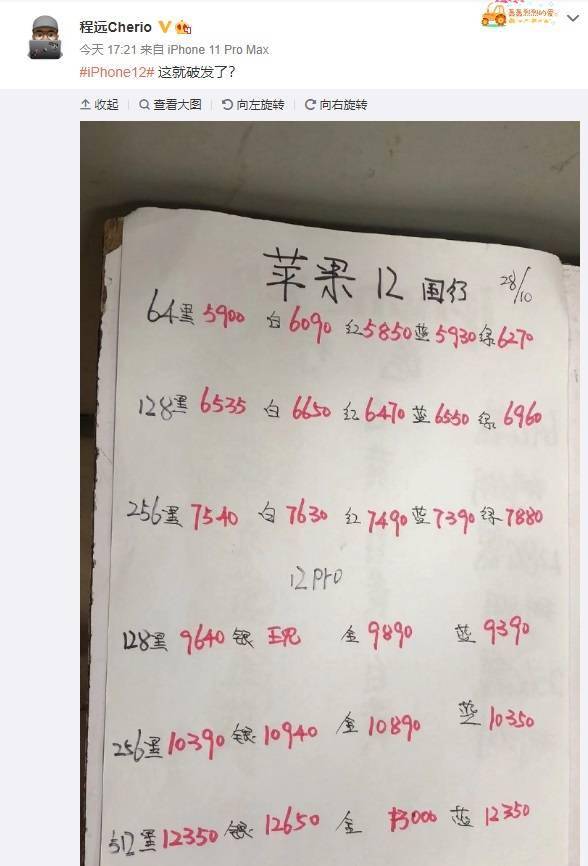 程远Cherio
轰轰烈烈的爱
今天 17:21 来自 iPhone 11 Pro Max
#iPhone12# 这就破发了？
收起 查看大图 向左旋转 向右旋转
苹果 12 国行 28/10
64黑 5900 白 6090 红 5850 蓝 5930 绿 6270
128黑 6535 白 6650 红 6470 蓝 6550 绿 6960
256黑 7540 白 7630 红 7490 蓝 7390 绿 7880
12 Pro
128黑 9640 银 金 9890 蓝 9390
256黑 10390 银 10940 金 10890 蓝 10350
512黑 12350 银 12650 金 13000 蓝 12350